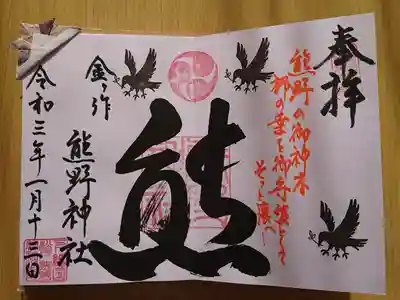 奉拝
熊野の御神木
梛の葉を御守護として
そっと懐へ
熊
金ヶ作
熊野神社
令和三年一月十三日